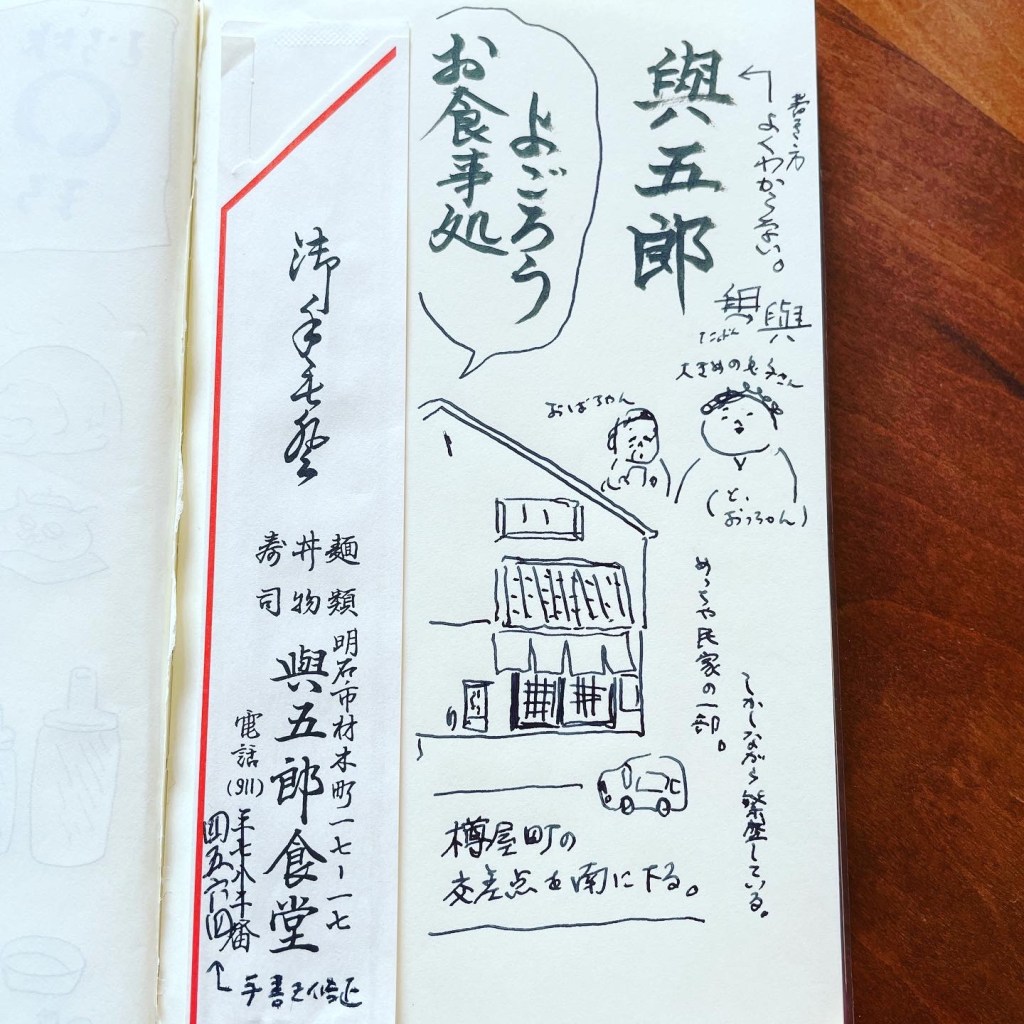 與五郎
書き方
よくわからない。
たぶん
よごろう
お食事処
大きめの
おばちゃん
(と、
おっちゃん)
めっちゃ民家の一部。
しかしながら繁盛している。
樽屋町の
交差点を南に下る。
御手毛登
麺類
丼物
寿司
明石市材木町一七ー一七
與五郎食堂
電話(911)
四五六四
手書き修正